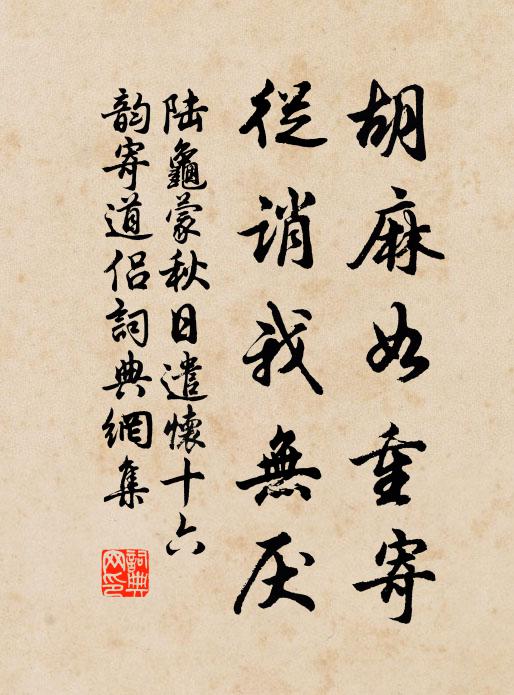 胡麻如重寄
從誚我無厌
陆龜蒙秋日遣懷十六
韵寄道侶詞典網集
詞典
网印